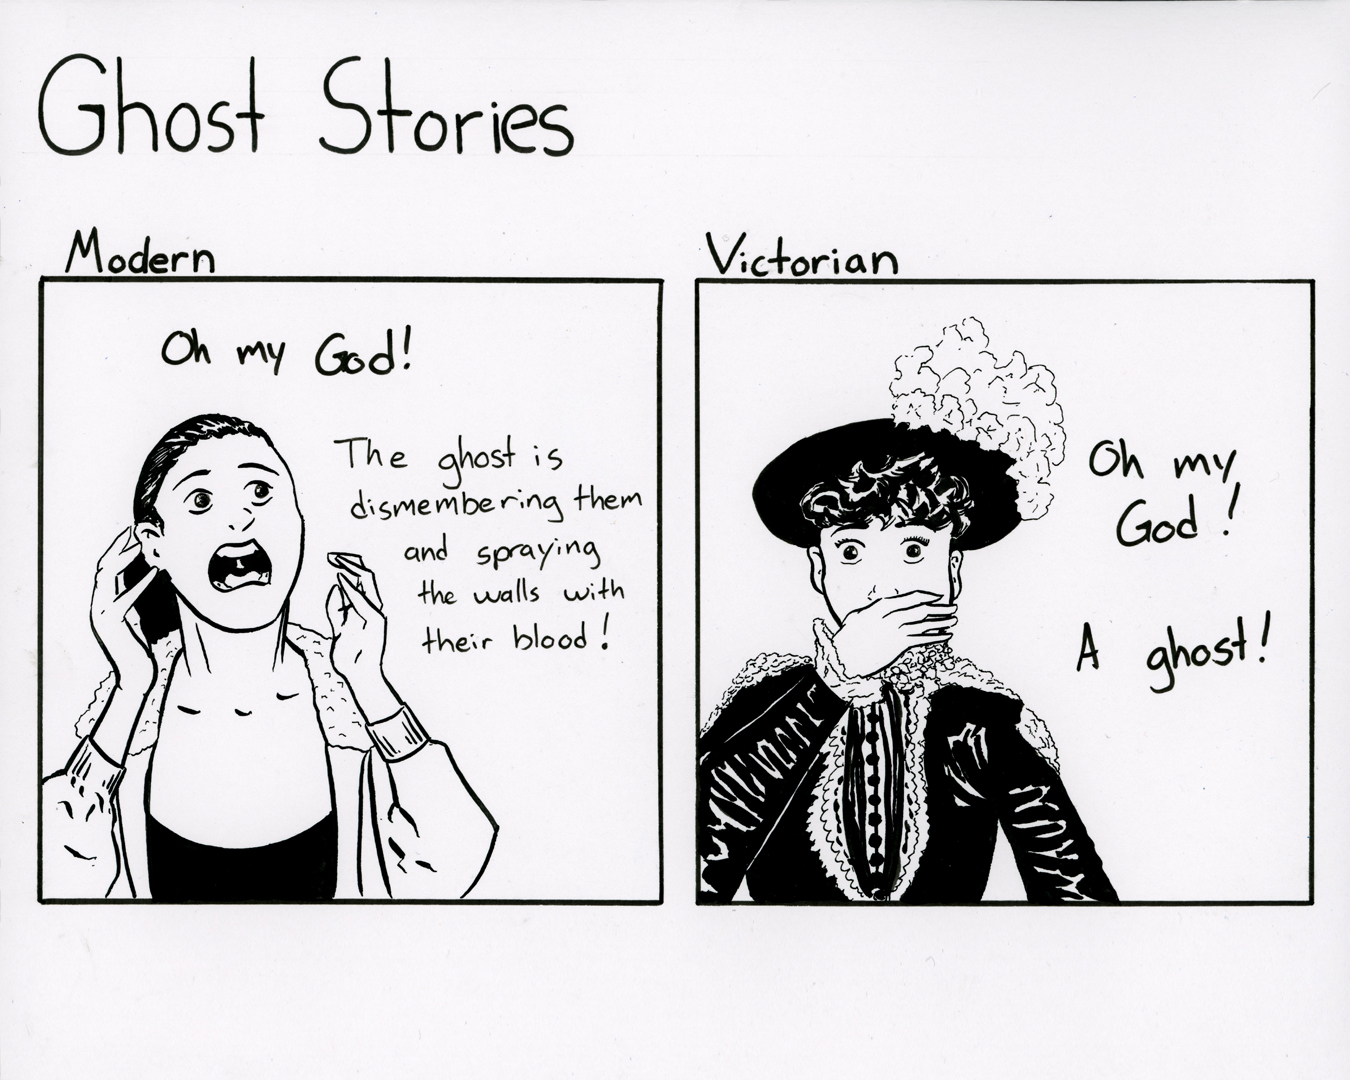 Ghost Stories
Modern
Oh my God!
The ghost is
dismembering them
and spraying
the walls with
their blood!
Victorian
Oh my
God!
A ghost!